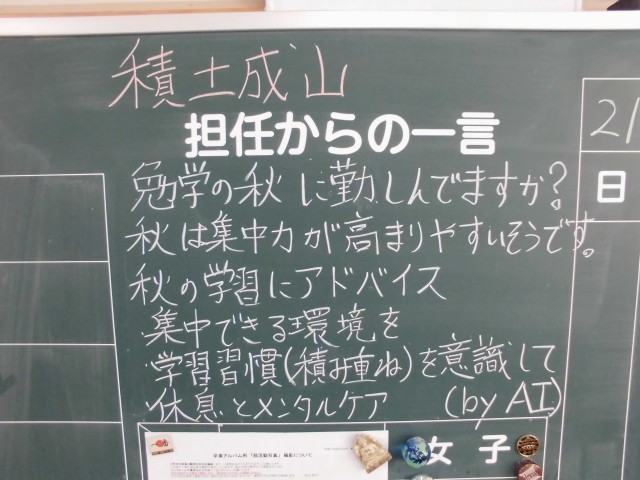 積土成山
担任からの一言
勉学の秋に勤しんでますか?
秋は集中力が高まりやすいそうです。
秋の学習にアドバイス
集中できる環境を
学習習慣(積み重ね)を意識して
休息とメンタルケア (by AI)
21
日
卒業アルバム用「部活動写真」撮影について
女子